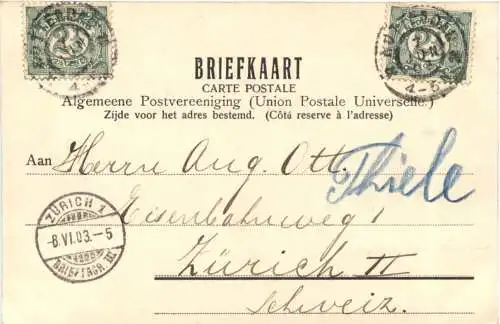 BRIEFKAART
CARTE POSTALE
Algemeene Postvereeniging (Union Postale Universelle.)
Zijde voor het adres bestemd. (Côté reserve à l'adresse)
Aan Herrn Aug. Ott.
Thiele
Eisenbahnweg 1
Zürich II
Schweiz.
ZÜRICH 1
-8.VI.03.-5
BRIEFTRÄGER